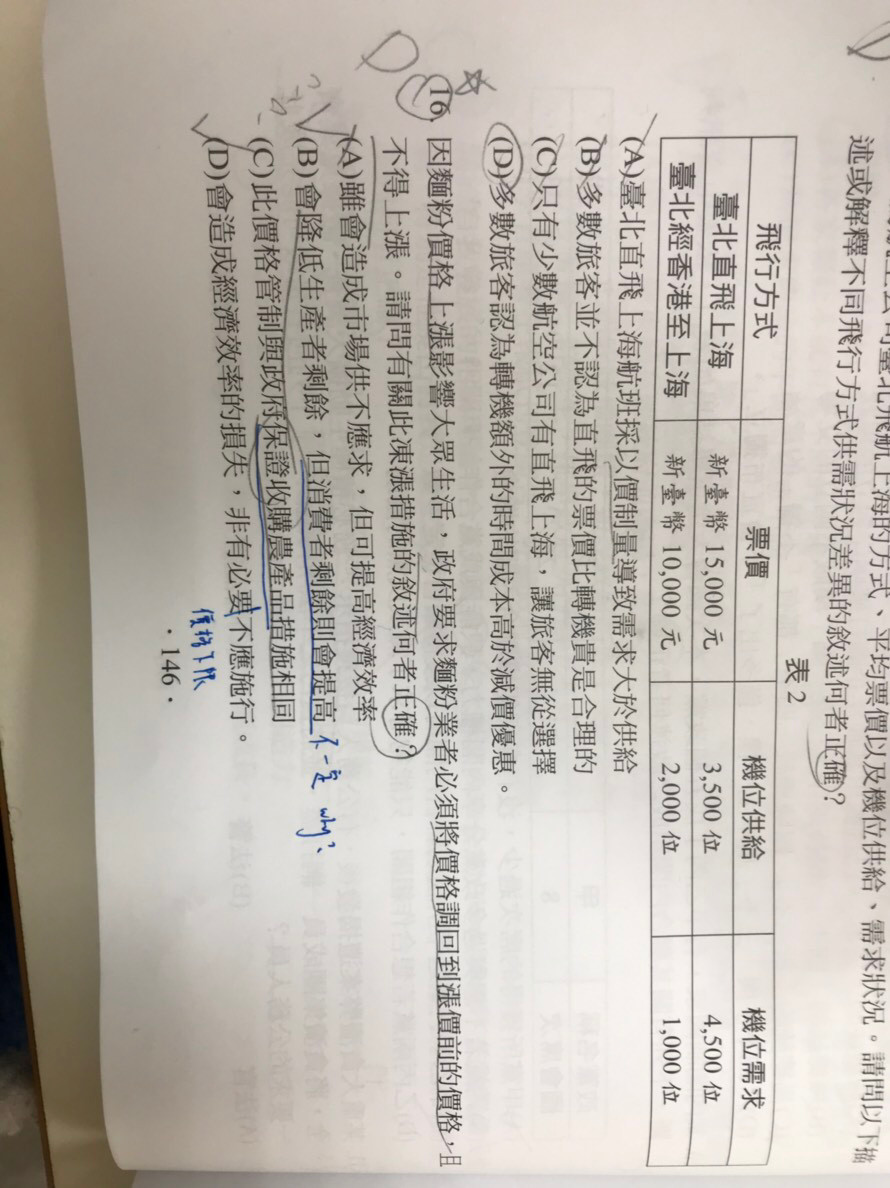 述或解釋不同飛行方式供需狀況差異的敘述何者正確？
表 2
飛行方式 票價 機位供給 機位需求
臺北直飛上海 新臺幣 15,000 元 3,500 位 4,500 位
臺北經香港至上海 新臺幣 10,000 元 2,000 位 1,000 位
(A)臺北直飛上海航班採以價制量導致需求大於供給
(B)多數旅客並不認為直飛的票價比轉機貴是合理的
(C)只有少數航空公司有直飛上海，讓旅客無從選擇
(D)多數旅客認為轉機額外的時間成本高於減價優惠。
D
16 因麵粉價格上漲影響大眾生活，政府要求麵粉業者必須將價格調回到漲價前的價格，且
不得上漲。請問有關此凍漲措施的敘述何者正確？
(A)雖會造成市場供不應求，但可提高經濟效率
(B)會降低生產者剩餘，但消費者剩餘則會提高 不一定 why?
(C)此價格管制與政府保證收購農產品措施相同
價格下限
(D)會造成經濟效率的損失，非有必要不應施行。
·146·